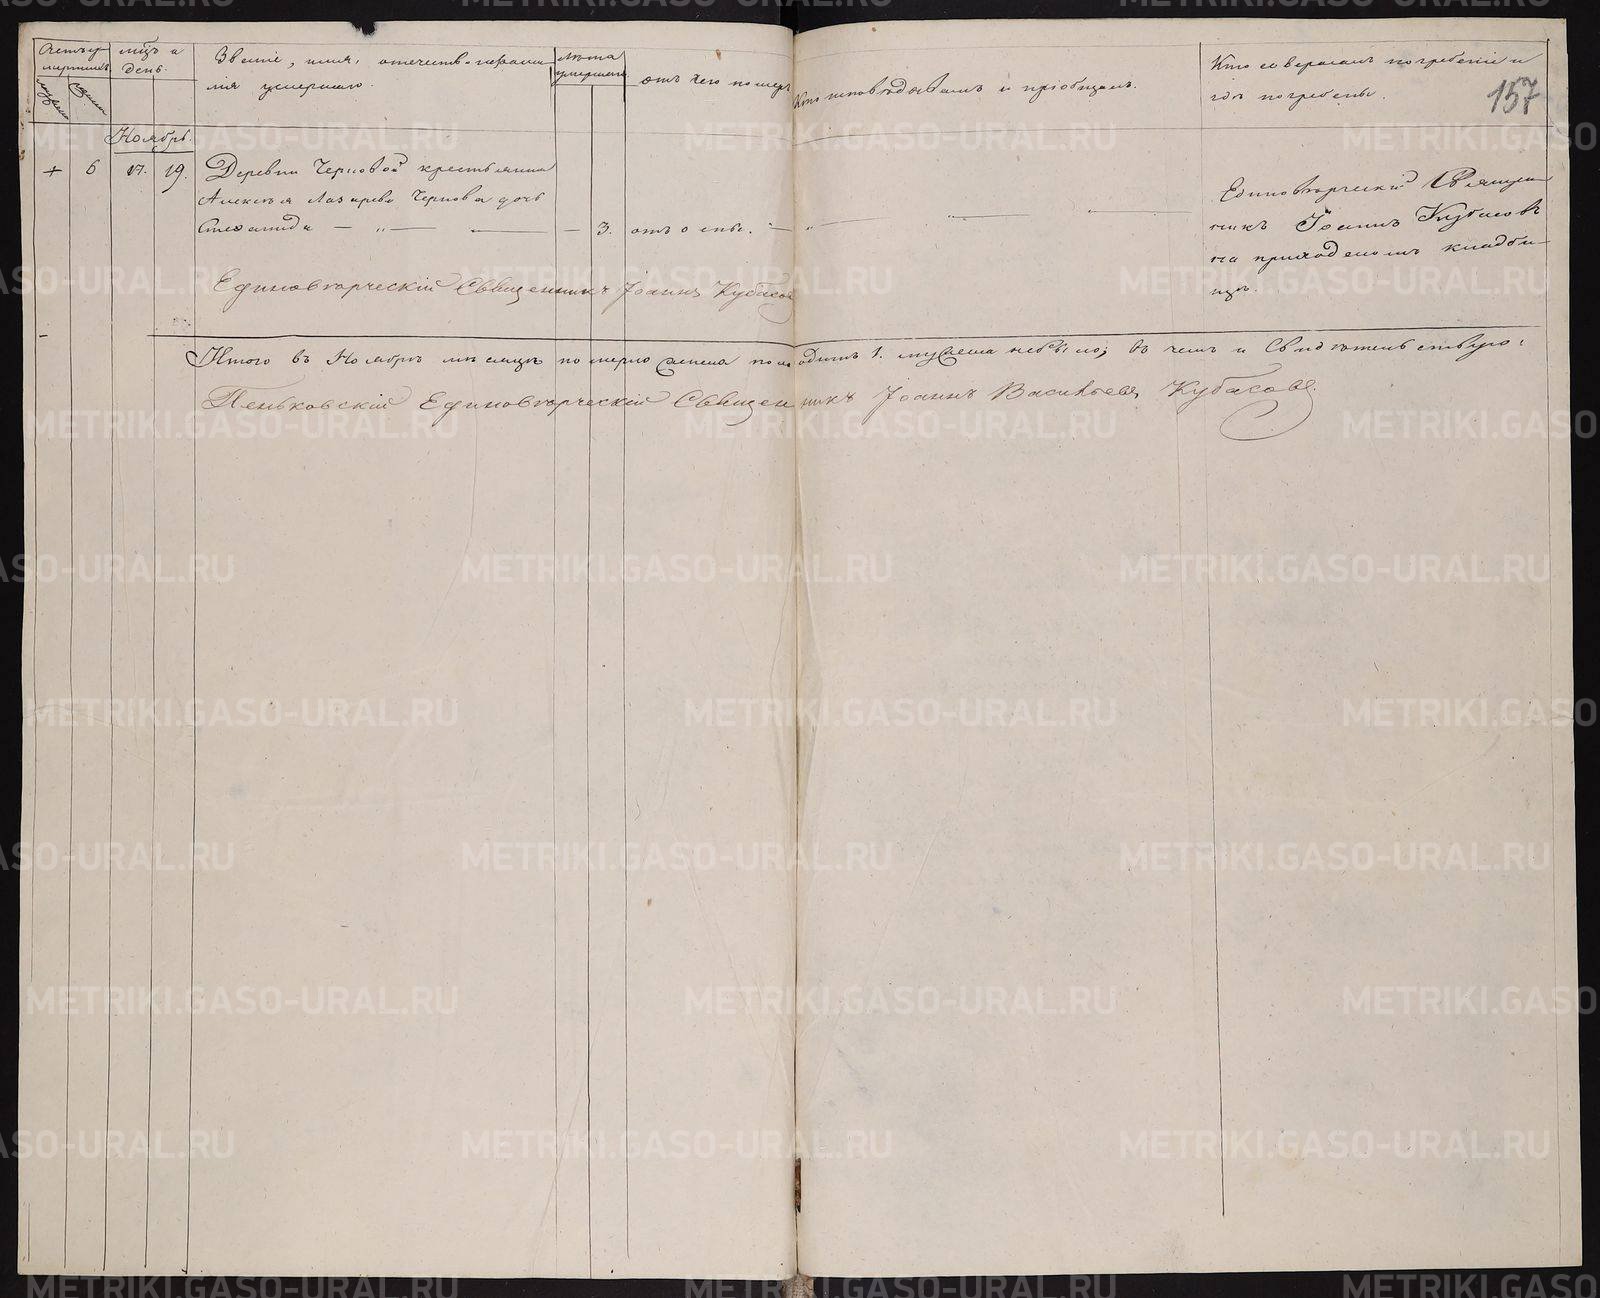 Счетъ умершихъ
мужеска
женска
мцъ и день.
Званіе, имя, отечество и фамилія умершаго.
лѣта умершаго
отъ чего померъ
Кто исповѣдовалъ и пріобщалъ.
Кто совершалъ погребеніе и
гдѣ погребены.
157
Ноябрь.
+ 6 17. 19. Деревни Черновой крестьянина
Алексѣя Лазарева Чернова дочь
Степанида — „ — — 3. отъ оспы. — „ — „ — „ —
Единовѣрческій Священ-
никъ Іоаннъ Кубасовъ
на приходскомъ кладби-
щѣ.
Единовѣрческій Священникъ Іоаннъ Кубасовъ
Итого въ Ноябрѣ мѣсяцѣ померло женска пола одинъ 1. мужеска небыло; въ чемъ и Свидѣтельствую:
Пеньковскій Единовѣрческій Священникъ Іоаннъ Васильевъ Кубасовъ.
METRIKI.GASO-URAL.RU